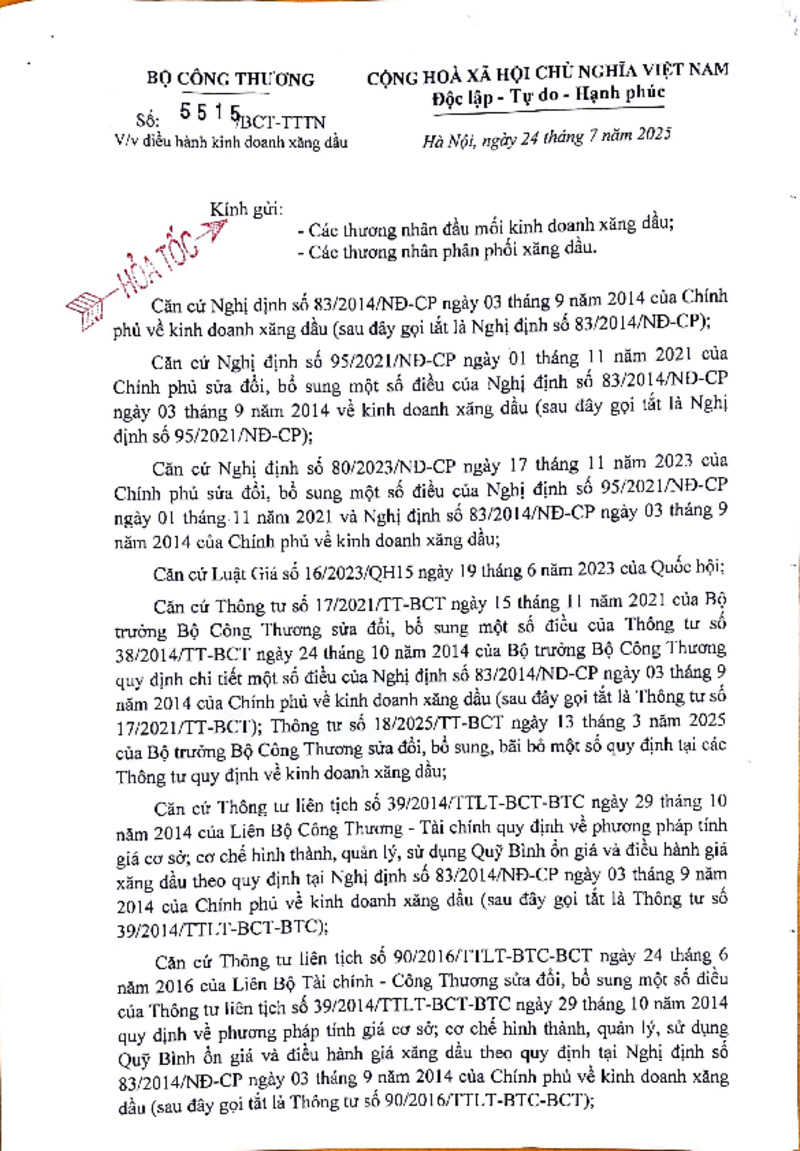 BỘ CÔNG THƯƠNG
CỘNG HOÀ XÃ HỘI CHỦ NGHĨA VIỆT NAM
Độc lập - Tự do - Hạnh phúc
Số: 5515/BCT-TTTN
V/v điều hành kinh doanh xăng dầu
Hà Nội, ngày 24 tháng 7 năm 2025
Kính gửi:
- Các thương nhân đầu mối kinh doanh xăng dầu;
- Các thương nhân phân phối xăng dầu.
HỎA TỐC
Căn cứ Nghị định số 83/2014/NĐ-CP ngày 03 tháng 9 năm 2014 của Chính
phủ về kinh doanh xăng dầu (sau đây gọi tắt là Nghị định số 83/2014/NĐ-CP);
Căn cứ Nghị định số 95/2021/NĐ-CP ngày 01 tháng 11 năm 2021 của
Chính phủ sửa đổi, bổ sung một số điều của Nghị định số 83/2014/NĐ-CP
ngày 03 tháng 9 năm 2014 về kinh doanh xăng dầu (sau đây gọi tắt là Nghị
định số 95/2021/NĐ-CP);
Căn cứ Nghị định số 80/2023/NĐ-CP ngày 17 tháng 11 năm 2023 của
Chính phủ sửa đổi, bổ sung một số điều của Nghị định số 95/2021/NĐ-CP
ngày 01 tháng 11 năm 2021 và Nghị định số 83/2014/NĐ-CP ngày 03 tháng 9
năm 2014 của Chính phủ về kinh doanh xăng dầu;
Căn cứ Luật Giá số 16/2023/QH15 ngày 19 tháng 6 năm 2023 của Quốc hội;
Căn cứ Thông tư số 17/2021/TT-BCT ngày 15 tháng 11 năm 2021 của Bộ
trưởng Bộ Công Thương sửa đổi, bổ sung một số điều của Thông tư số
38/2014/TT-BCT ngày 24 tháng 10 năm 2014 của Bộ trưởng Bộ Công Thương
quy định chi tiết một số điều của Nghị định số 83/2014/NĐ-CP ngày 03 tháng 9
năm 2014 của Chính phủ về kinh doanh xăng dầu (sau đây gọi tắt là Thông tư số
17/2021/TT-BCT); Thông tư số 18/2025/TT-BCT ngày 13 tháng 3 năm 2025
của Bộ trưởng Bộ Công Thương sửa đổi, bổ sung, bãi bỏ một số quy định tại các
Thông tư quy định về kinh doanh xăng dầu;
Căn cứ Thông tư liên tịch số 39/2014/TTLT-BCT-BTC ngày 29 tháng 10
năm 2014 của Liên Bộ Công Thương - Tài chính quy định về phương pháp tính
giá cơ sở; cơ chế hình thành, quản lý, sử dụng Quỹ Bình ổn giá và điều hành giá
xăng dầu theo quy định tại Nghị định số 83/2014/NĐ-CP ngày 03 tháng 9 năm
2014 của Chính phủ về kinh doanh xăng dầu (sau đây gọi tắt là Thông tư số
39/2014/TTLT-BCT-BTC);
Căn cứ Thông tư liên tịch số 90/2016/TTLT-BTC-BCT ngày 24 tháng 6
năm 2016 của Liên Bộ Tài chính - Công Thương sửa đổi, bổ sung một số điều
của Thông tư liên tịch số 39/2014/TTLT-BCT-BTC ngày 29 tháng 10 năm 2014
quy định về phương pháp tính giá cơ sở; cơ chế hình thành, quản lý, sử dụng
Quỹ Bình ổn giá và điều hành giá xăng dầu theo quy định tại Nghị định số
83/2014/NĐ-CP ngày 03 tháng 9 năm 2014 của Chính phủ về kinh doanh xăng
dầu (sau đây gọi tắt là Thông tư số 90/2016/TTLT-BTC-BCT);